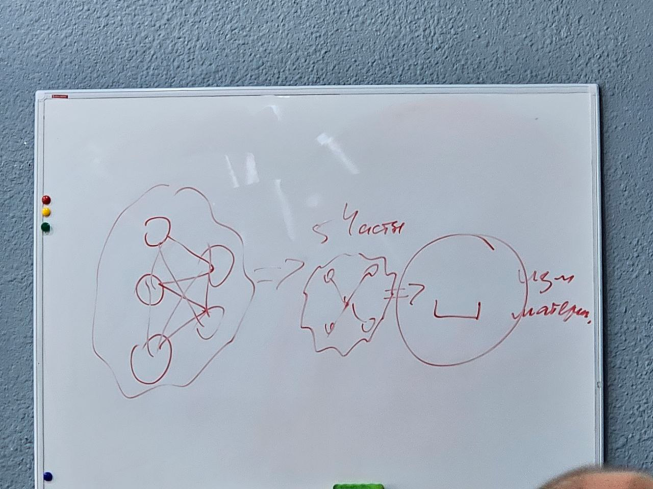 5 Части
изм
матери.